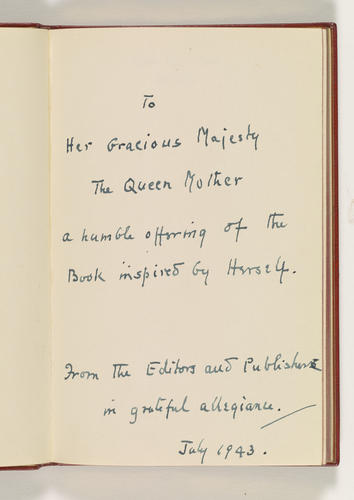 To
Her Gracious Majesty
The Queen Mother
a humble offering of the
Book inspired by Herself.
From the Editors and Publishers
in grateful allegiance.
July 1943.